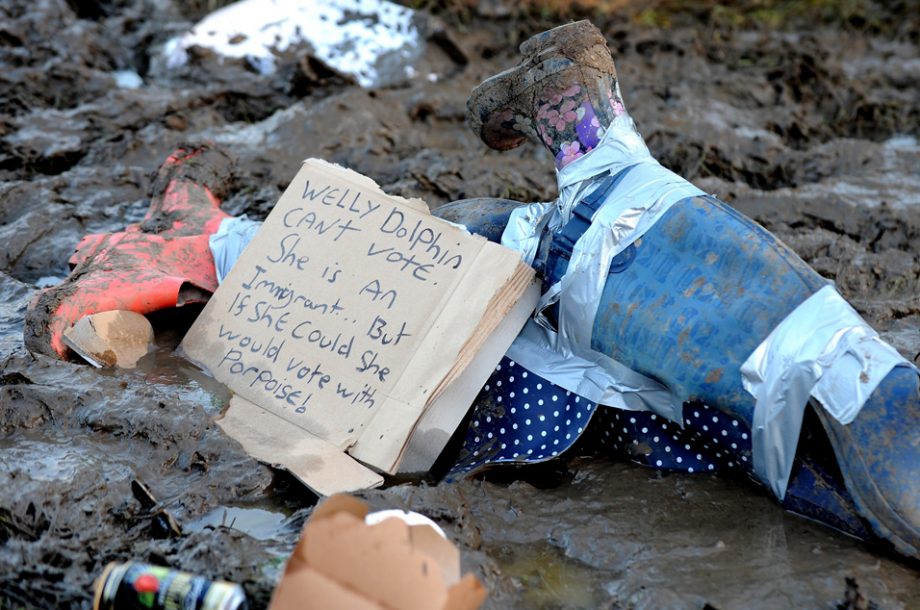 WELLY DOlphin
CAN'T VOTE.
She is An
Immigrant.. But
If She Could She
would Vote with
Porpoise!